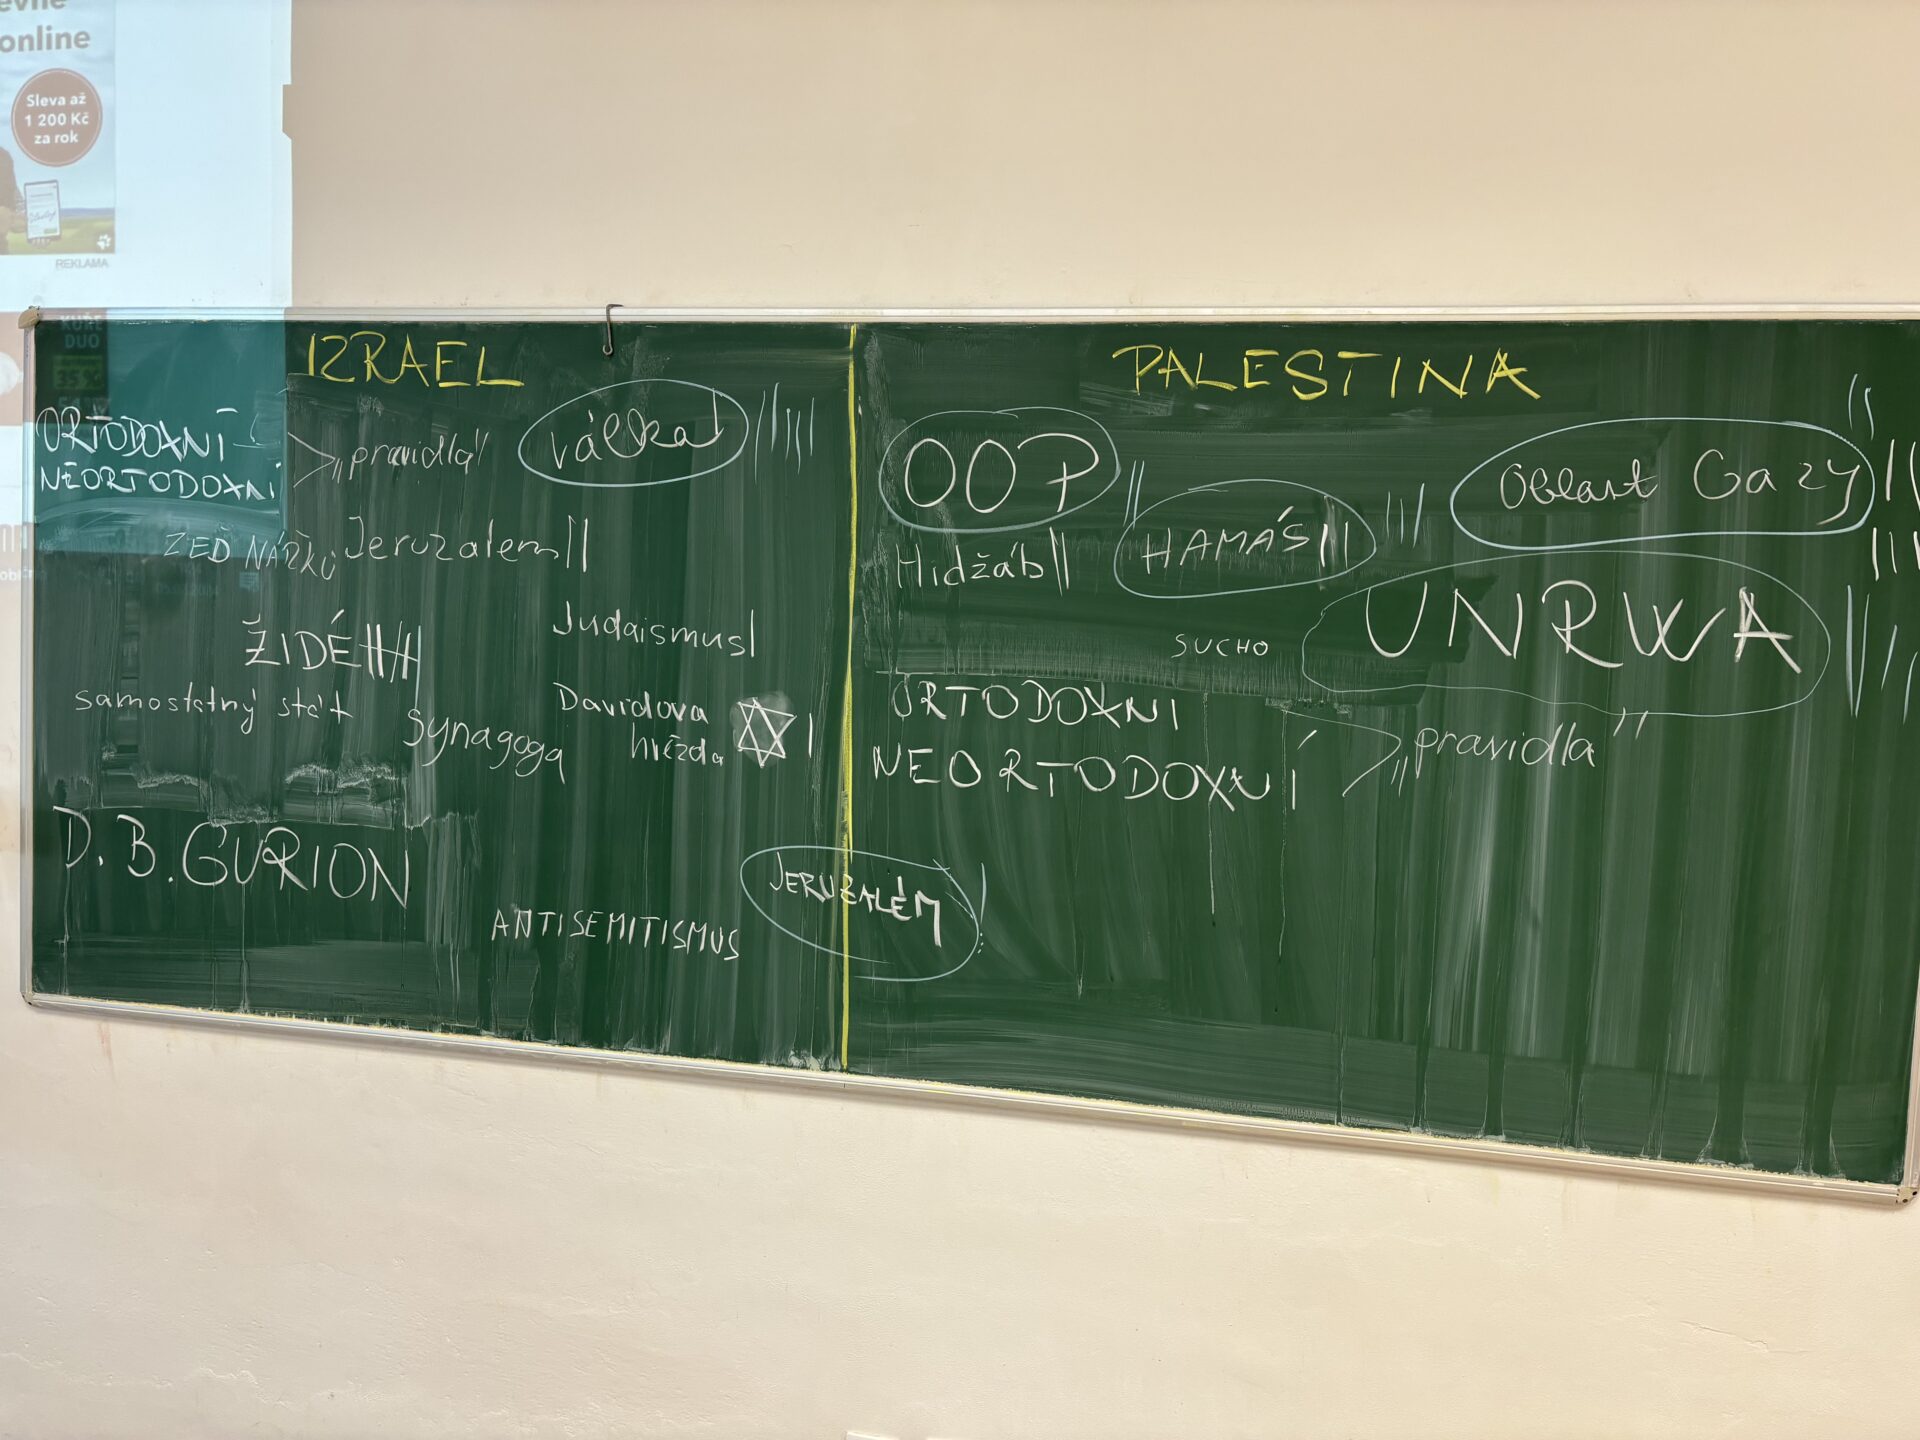 online
Sleva až
1 200 Kč
za rok
REKLAMA
KUŘE
DUO
35%
IZRAEL
ORTODOXNÍ
NEORTODOXNÍ
„pravidla"
válka
ZEĎ NÁŘKŮ
Jeruzalem
ŽIDÉ
Judaismus
samostatný stát
synagoga
Davidova
hvězda
D. B. GURION
ANTISEMITISMUS
JERUZALÉM
PALESTINA
OOP
HAMÁS
Oblast Gazy
Hidžáb
SUCHO
UNRWA
ORTODOXNI
NEORTODOXNÍ
„pravidla"